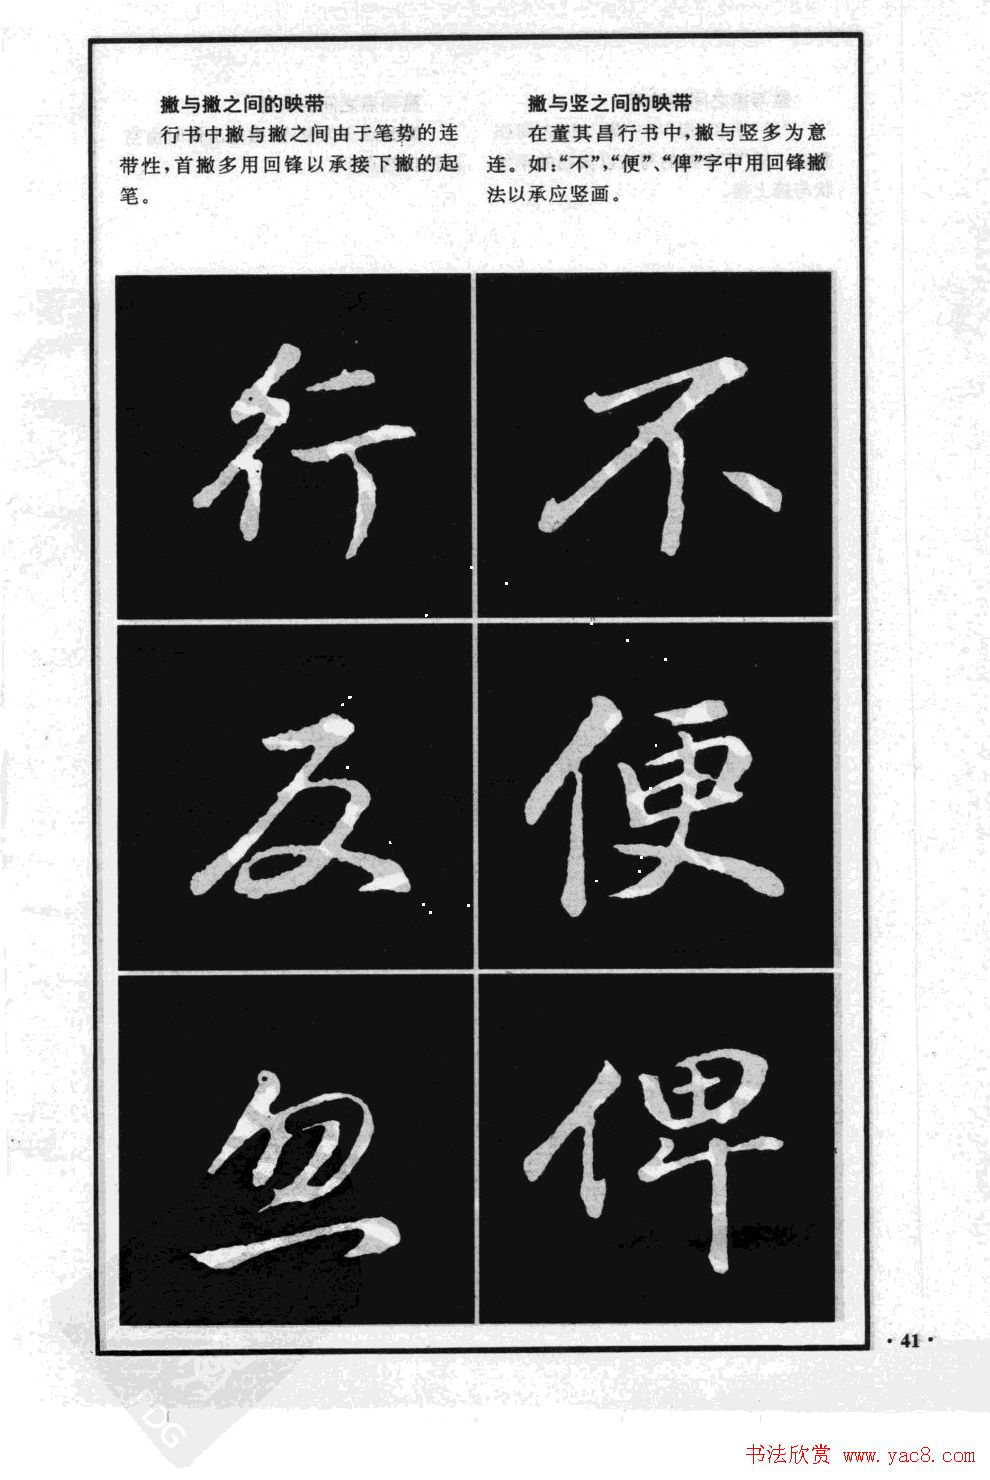 撇与撇之间的映带
行书中撇与撇之间由于笔势的连
带性，首撇多用回锋以承接下撇的起
笔。
撇与竖之间的映带
在董其昌行书中，撇与竖多为意
连。如：“不”，“便”、“俾”字中用回锋撇
法以承应竖画。
行
不
反
便
忽
俾
·41·
DG
书法欣赏 www.yac8.com